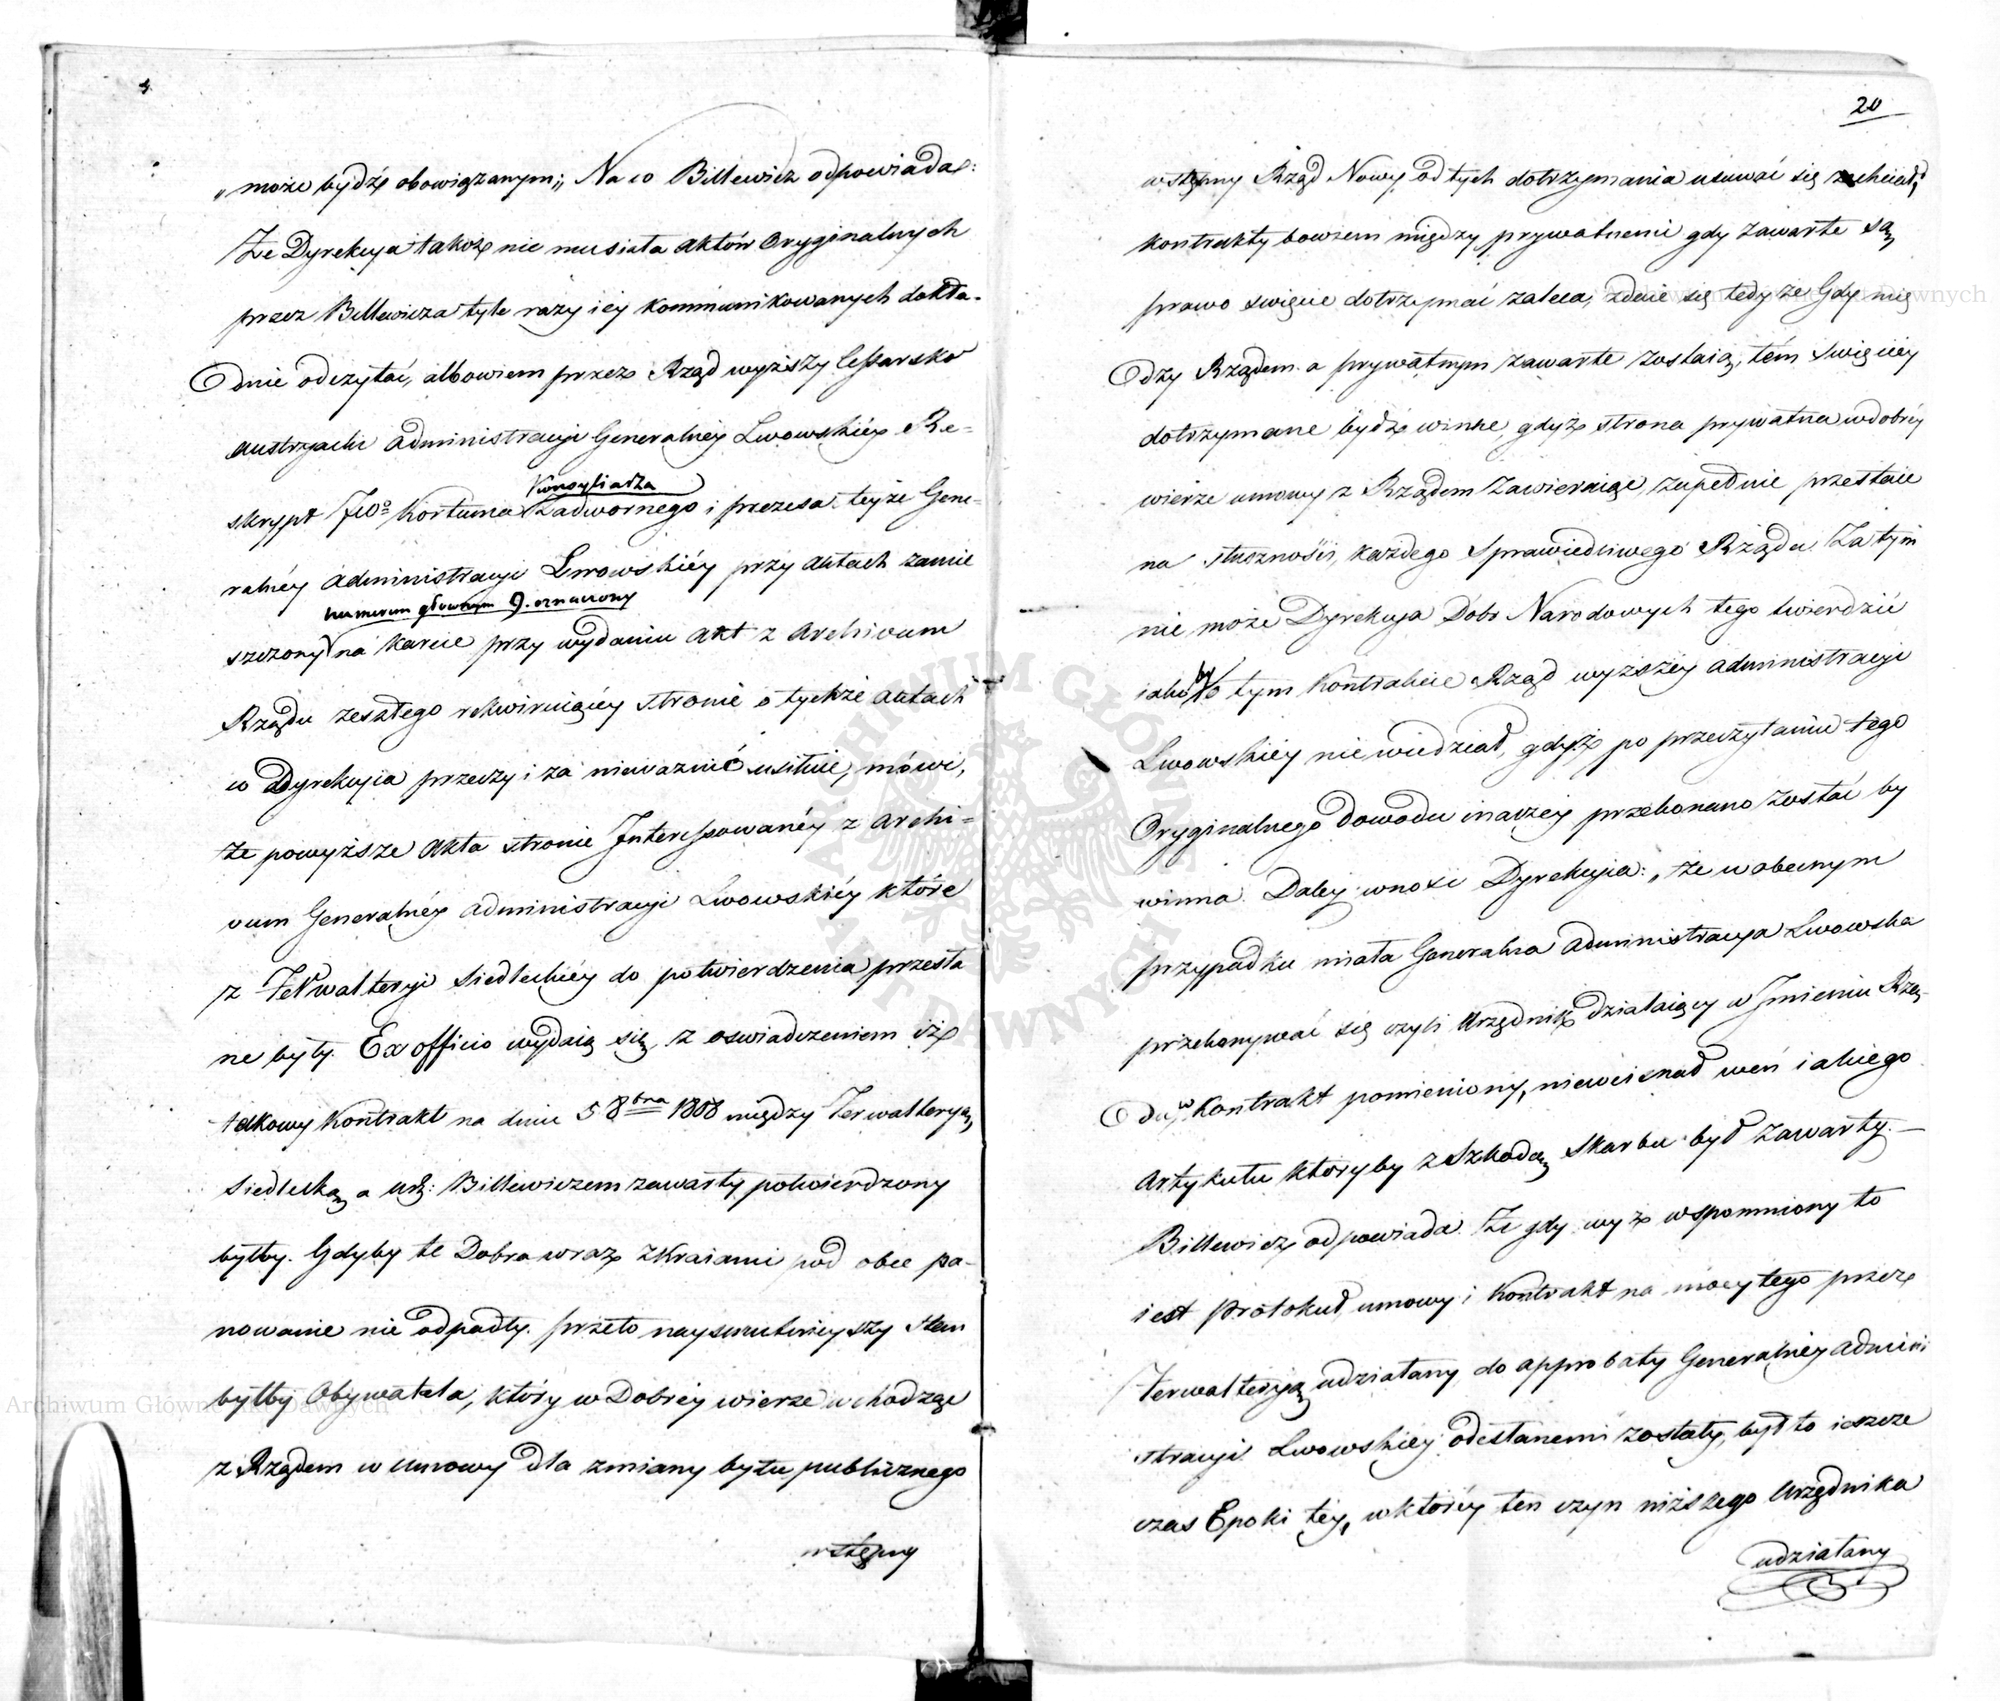 „może bydź obowiązanym;„ Na co Billewicz odpowiada:
Że Dyrekcya także nie musiała aktów Oryginalnych
przez Billewicza tyle razy iey kommunikowanych dokła-
dnie odczytać, albowiem przez Rząd wyższy Cessarsko
austryacki administracyi Generalney Lwowskiey Re-
Konsyliarza
skrypt JWo Kortuma Nadwornego i prezesa teyże Gene-
ralnéy administracyi Lwowskiéy przy aktach zamie
numerum głównym 9. oznaczony
szczony na karcie przy wydaniu akt z Archivum
Rządu zeszłego rekwiruiącéy stronie o tychże aktach
co Dyrekcyia przeczy i za nieważnić usiłuie, mówi,
że powyższe akta stronie Interessowanéy z Archi-
vum Generalnéy administracyi Lwowskiéy które
z Ferwalteryi Siedleckiéy do potwierdzenia przesła
ne były. Ex officio wydaią się, z oswiadczeniem iż
takowy Kontrakt na dniu 5 8bra 1808 między Ferwalteryą
Siedlecką a Ur: Billewiczem zawarty potwierdzony
byłby. Gdyby te Dobra wraz z Kraiami pod obce pa-
nowanie nie odpadły. przeto naysmutnieyszy stan
byłby Obywatela, który w Dobréy wierze wchodząc
z Rządem w umowy dla zmiany bytu publicznego
wstępny
20
wstępny Rząd Nowy od tych dotrzymania usuwać się zechciał,
kontrakty bowiem między prywatnemi gdy zawarte są,
prawo swięcie dotrzymać zaleca, zdaie się tedy że Gdy mię
dzy Rządem a prywatnym zawarte zostaią, tém swięciéy
dotrzymane bydź winne, gdyż strona prywatna w dobréy
wierze umowy z Rządem zawieraiąc, zupełnie przestaie
na słuszności, każdego Sprawiedliwego Rządu. Zatym
nie może Dyrekcya Dobr Narodowych tego twierdzić
iakoby o tym Kontrakcie Rząd wyższéy administracyi
Lwowskiéy nie wiedział, gdyż po przeczytaniu tego
Oryginalnego Dowodu inaczéy przekonano zostać by
winna. Daléy wnosi Dyrekcyia: „że w obecnym
przypadku miała Generalna administracya Lwowska
przekonywać się czyli Urzędnik działaiący w Jmieniu Rzą-
du, w Kontrakt pomieniony, niewcisnął weń iakiego
Artykułu któryby z Szkodą Skarbu był zawarty.—
Billewicz odpowiada. Że gdy wyż wspomniony to
iest Protokuł umowy i Kontrakt na mocy tego przez
Ferwalteryą udziałany do approbaty Generalnéy admini
stracyi Lwowskiéy odesłanemi zostały, był to ieszcze
czas Epoki téy, w któréy ten czyn niższego Urzędnika
udziałany